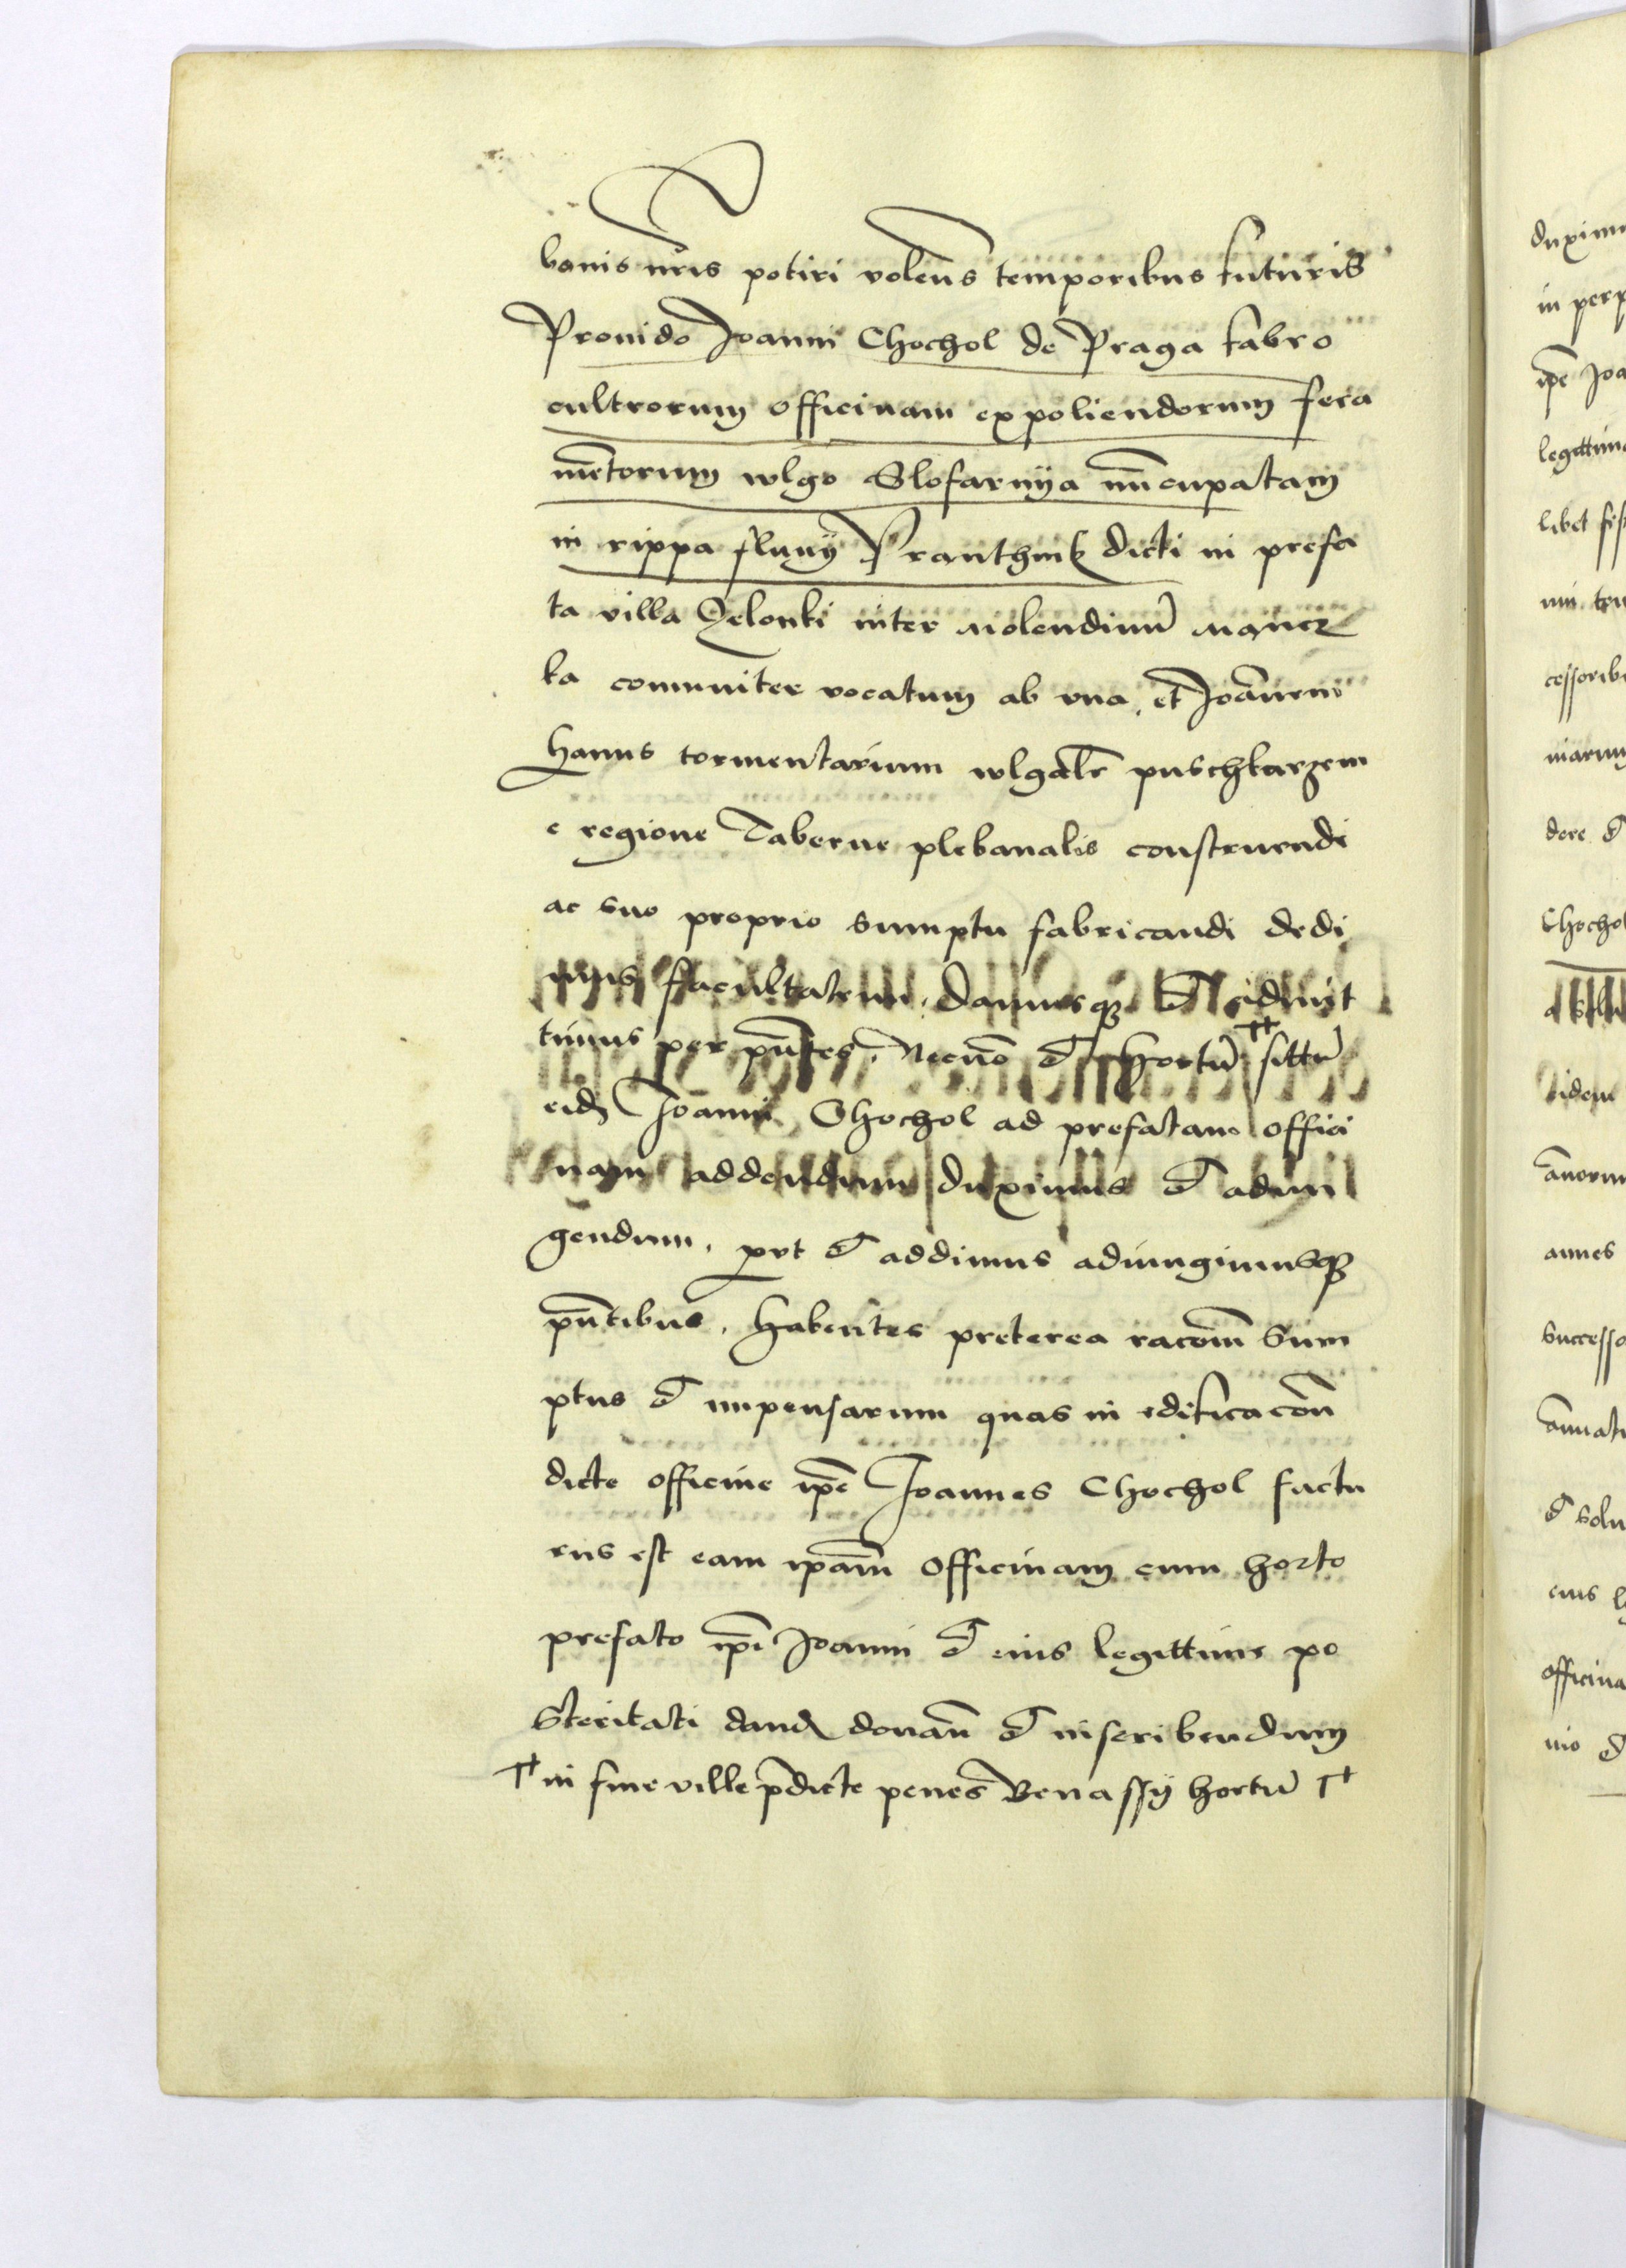 banis nr̃is potiri volens temporibus futuris
Prouido Joanni Chochol de Praga fabro
cultrorum officinam expoliendorum fera
me͂torum wlgo Slofarnÿa nu͂cupatam
in rippa fluuÿ Pranthnik dicti in prefa
ta villa Czelonki inter molendinu͂
ka comuniter vocatum ab vna, et Joan͂nem
Hanus tormentarium wlgalr̃ puschkarzem
e regione Taberne plebanalis construendi
ac suo proprio sumptu fabricandi dedi
mus facultatem, damusqꝫ et
timus per pn͂tes, Necno͂ et hortu͂ ⸸ sittu͂
eidꝫ Joanni Chochol ad prefatam offici
nam addendum duximus et adiun
gendum, prt et addimus adiungimusqꝫ
pn͂tibus, habentes preterea raco͂m sum
ptus et impensarum quas in edificaco͂n
dicte officine ip͂e Joannes Chochol factu
rus est eam ip͂am officinam cum horto
prefato ip͂i Joanni et eius legittime po
steritati dand donan͂ et inscribendum
⸸ in fine ville p͂dicte penes Benassÿ hortu͂ ⸸
duximu
in perp
ip͂e Joa
legittim
libet

cessorib
niarum
dere et
Chochol

eidem
an͂orum
annes
successo
an͂uati
et solu
eius
officina
nio et